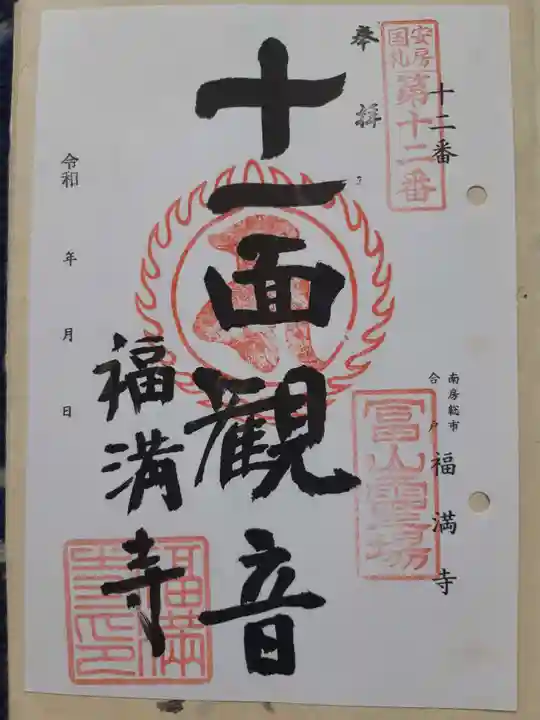 安房
国札
第十二番
十二番
奉拝
十一面観音
南房総市
合戸
福満寺
富山霊場
福満寺
令和 年 月 日
福満
寺印